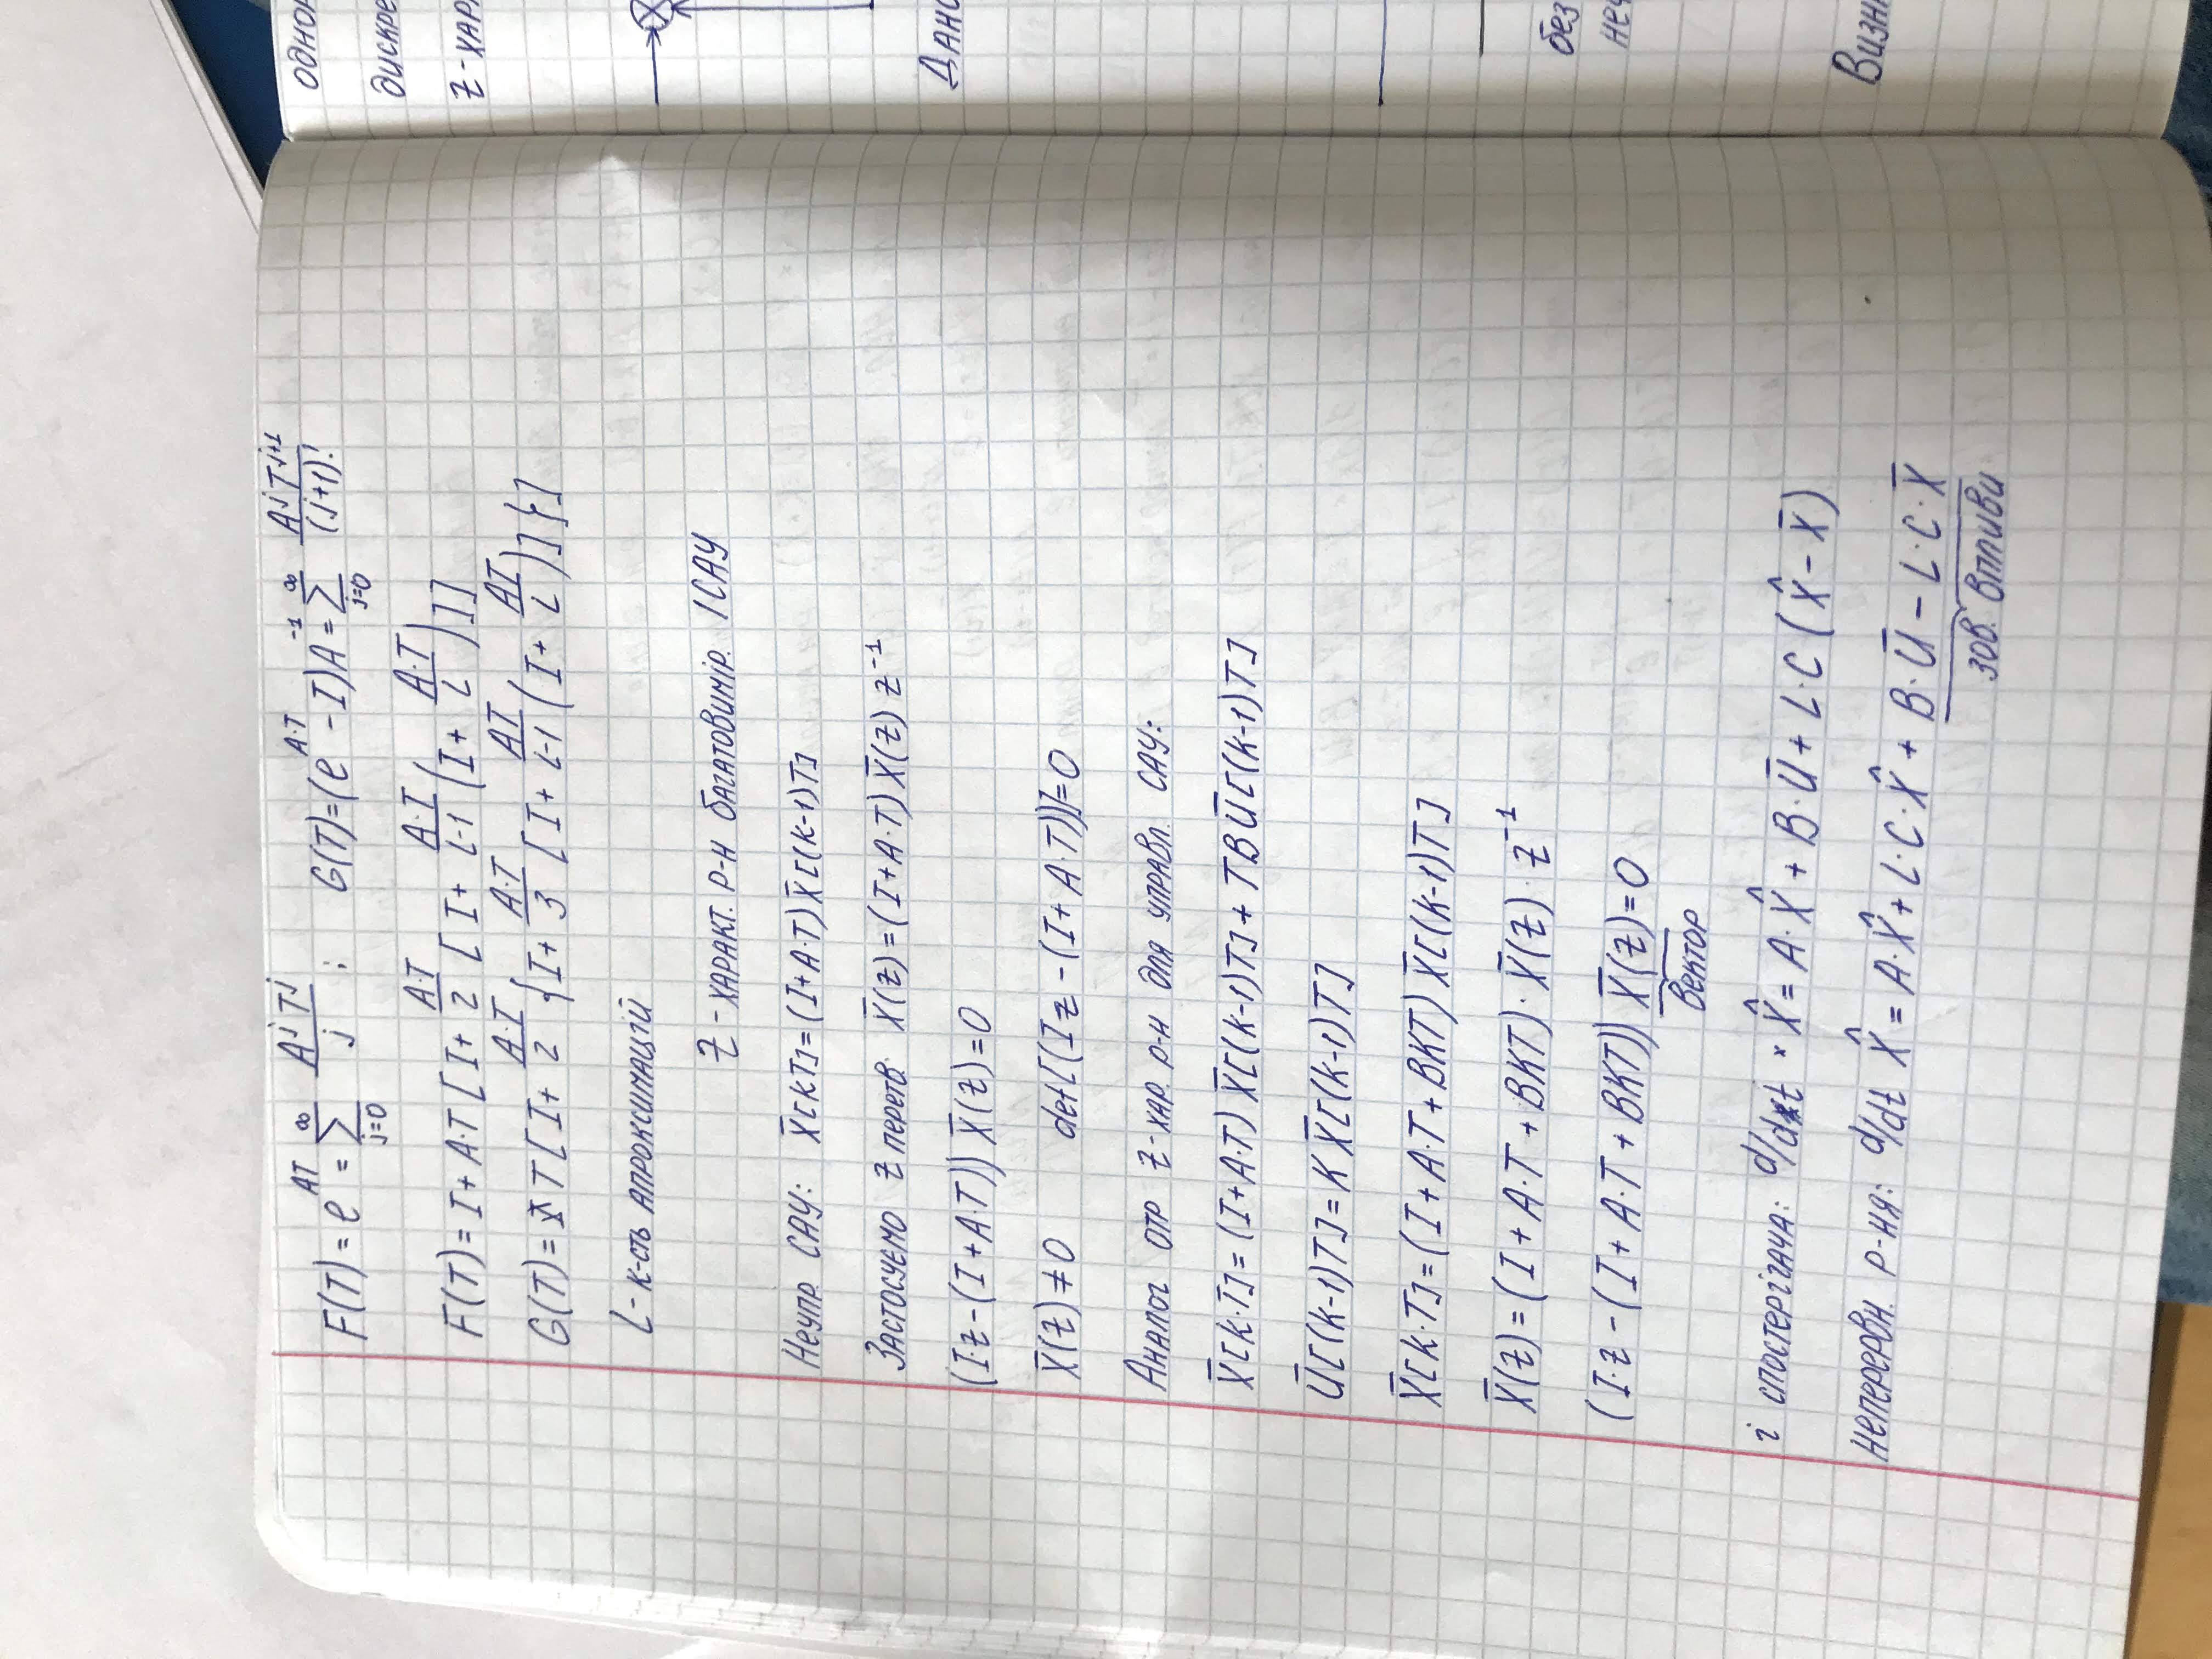 F(T) = e^{AT} = \sum_{j=0}^{∞} \frac{A^j T^j}{j} ; G(T) = (e^{A·T} - I)A^{-1} = \sum_{j=0}^{∞} \frac{A^j T^{j+1}}{(j+1)!}
F(T) = I + A·T [I + \frac{A·T}{2} [I + \frac{A·T}{L-1} (I + \frac{A·T}{L})]]
G(T) = T [I + \frac{A·T}{2} {I + \frac{A·T}{3} [I + \frac{AT}{L-1} (I + \frac{AT}{L})]}]
L - к-сть апроксимацій
Z - характ. р-н багатовимір. ІСАУ
Неупр. САУ: X̄[kT] = (I+A·T) X̄[(k-1)T]
Застосуємо z перетв. X̄(z) = (I+A·T) X̄(z) z^{-1}
(I·z - (I+A·T)) X̄(z) = 0
X̄(z) ≠ 0 det[(Iz - (I + A·T))] = 0
Аналог отр z-хар. р-н для управл. САУ:
X̄[k·T] = (I+A·T) X̄[(k-1)T] + TBŪ[(k-1)T]
Ū[(k-1)T] = K X̄[(k-1)T]
X̄[k·T] = (I + A·T + BKT) X̄[(k-1)T]
X̄(z) = (I + A·T + BKT) · X̄(z) · z^{-1}
(I·z - (I + A·T + BKT)) X̄(z) = 0
вектор
і спостерігача: d/dt · X̂ = A·X̂ + B·Ū + L·C (X̂ - X̄)
неперервн. р-ня: d/dt X̂ = A·X̂ + L·C·X̂ + B·Ū - L·C·X̄
зов. впливи
дискре
z-хар
без